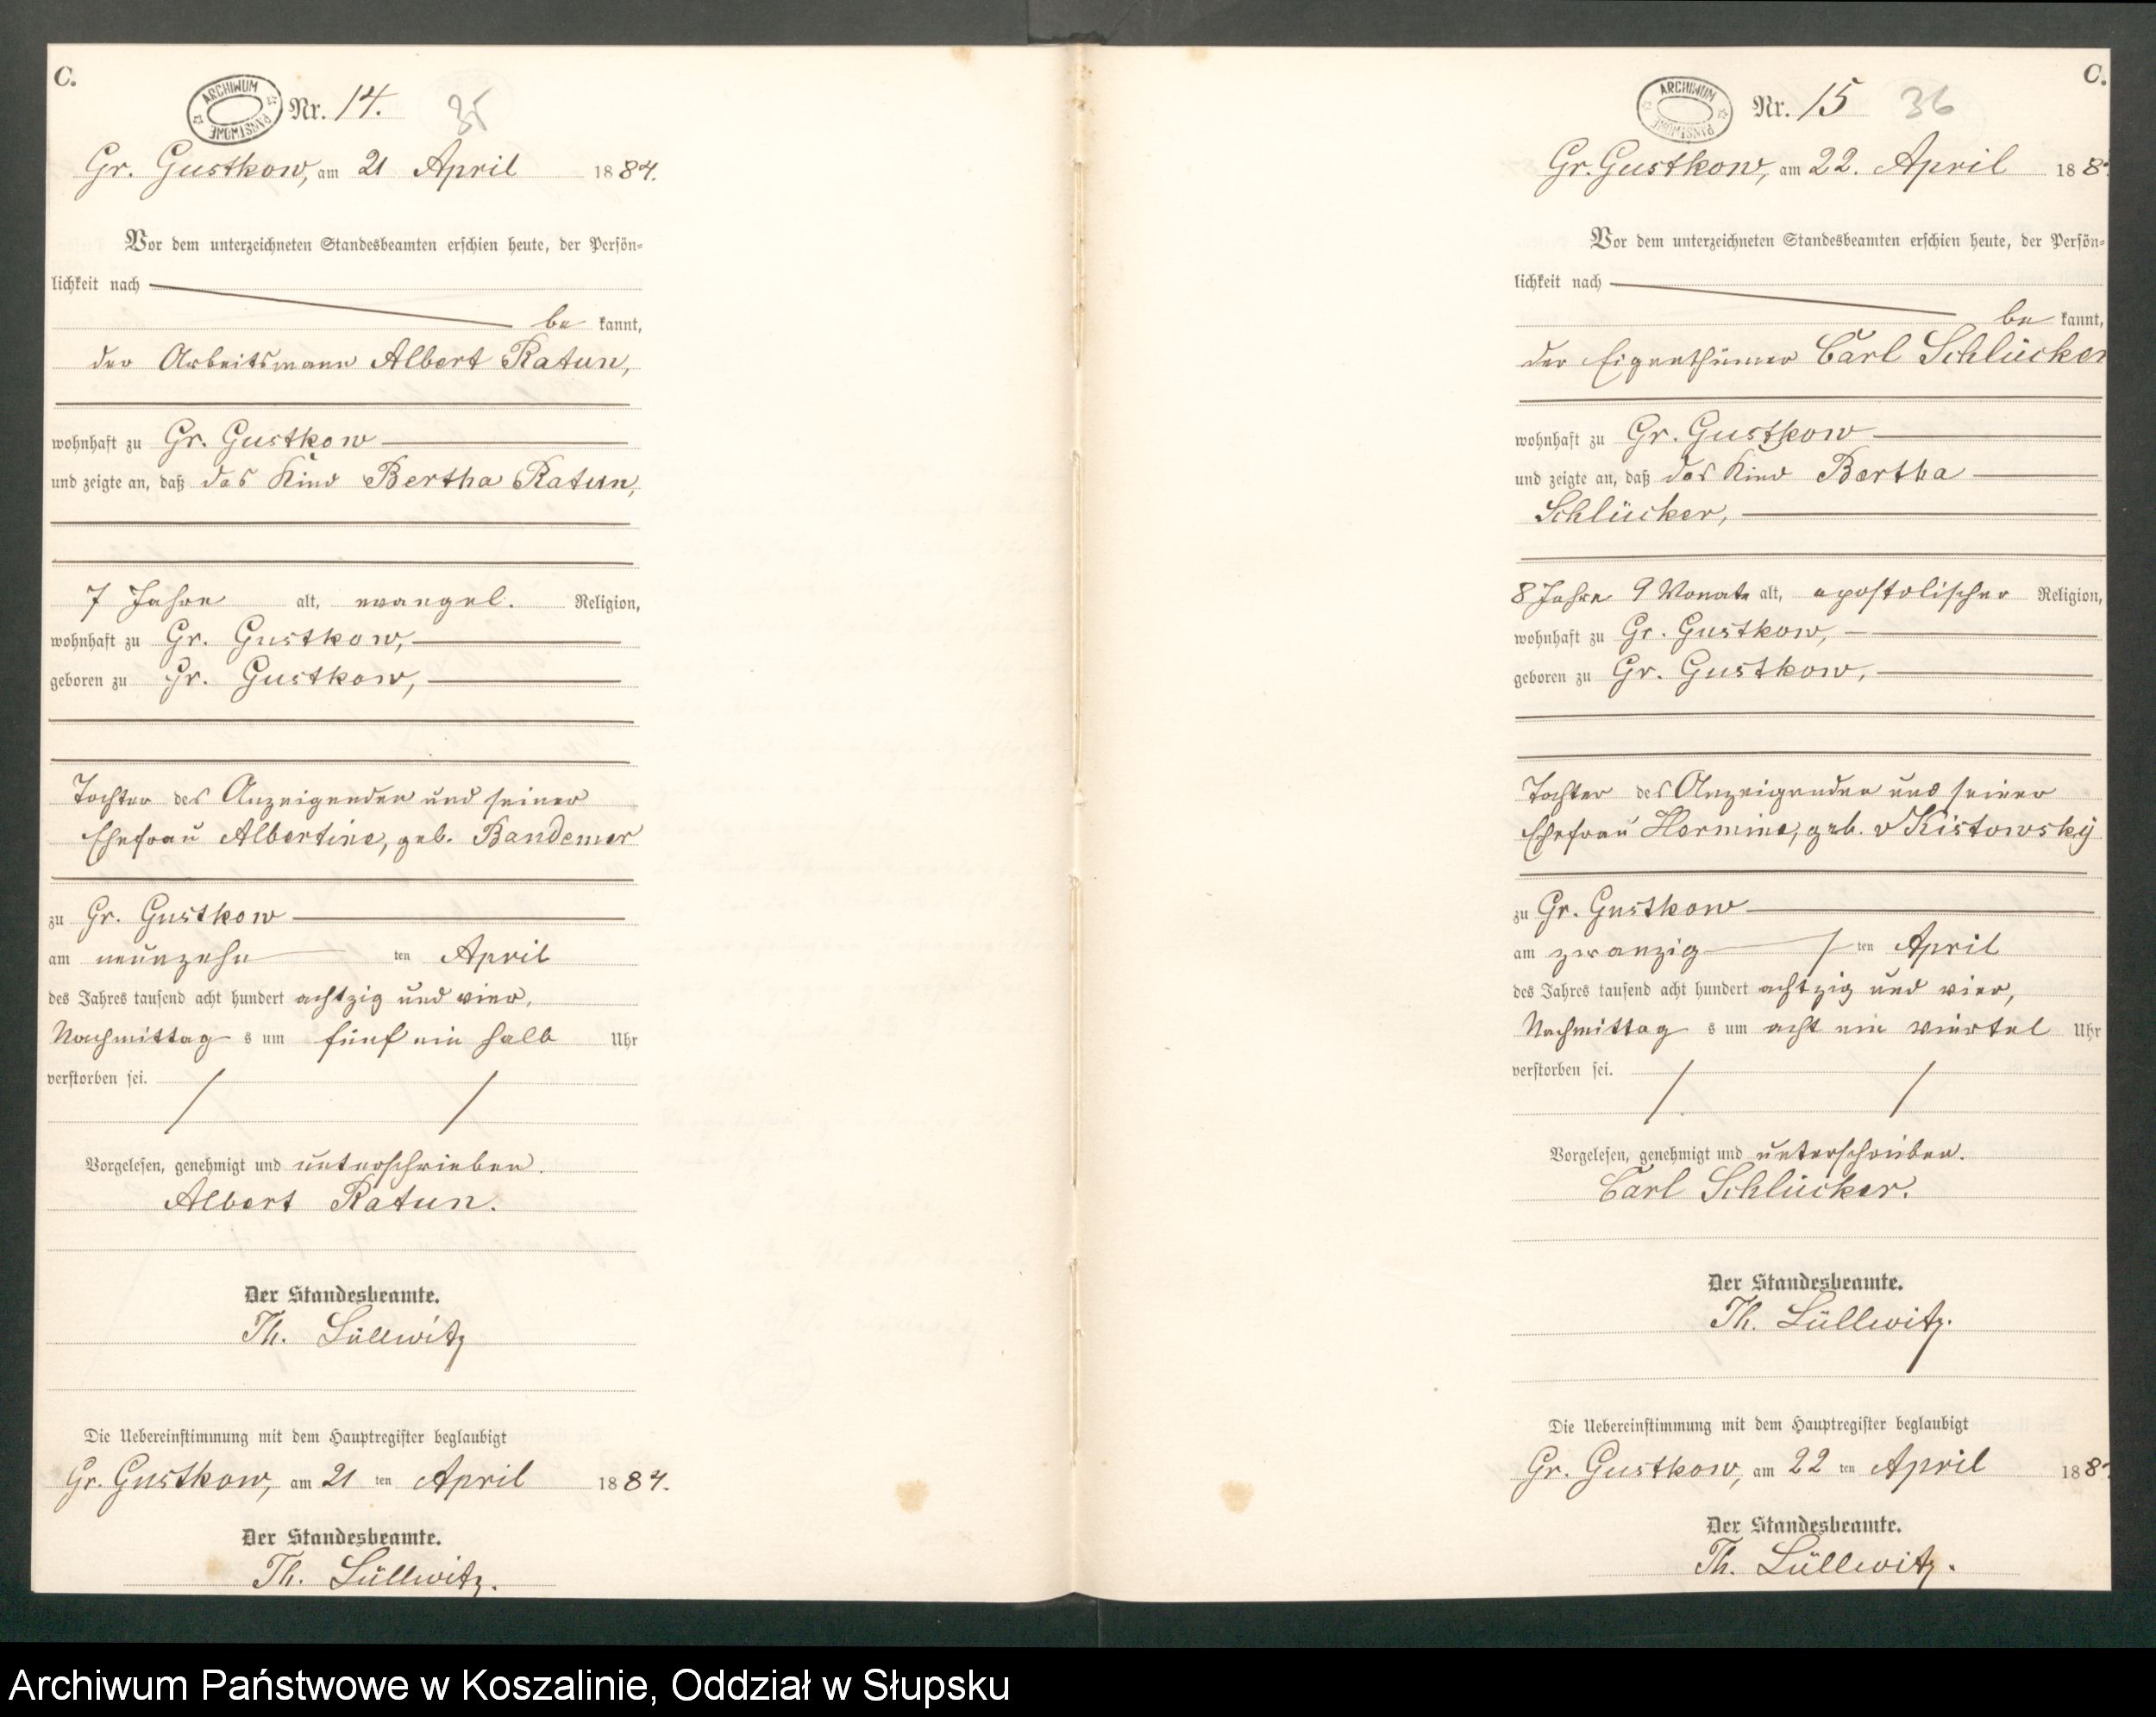 C.
ARCHIWUM PAŃSTWOWE
Nr. 14.
35
Gr. Gustkow, am 21 April 1884.
Vor dem unterzeichneten Standesbeamten erschien heute, der Persön-
lichkeit nach
be kannt,
der Arbeitsmann Albert Ratun,
wohnhaft zu Gr. Gustkow
und zeigte an, daß das Kind Bertha Ratun,
7 Jahre alt, evangel. Religion,
wohnhaft zu Gr. Gustkow,
geboren zu Gr. Gustkow,
Tochter des Anzeigenden und seiner
Ehefrau Albertine, geb. Bandemer
zu Gr. Gustkow
am neunzehn ten April
des Jahres tausend acht hundert achtzig und vier,
Nachmittag s um fünf ein halb Uhr
verstorben sei.
Vorgelesen, genehmigt und unterschrieben.
Albert Ratun.
Der Standesbeamte.
Th. Lüllwitz
Die Uebereinstimmung mit dem Hauptregister beglaubigt
Gr. Gustkow, am 21 ten April 1884.
Der Standesbeamte.
Th. Lüllwitz.
C.
ARCHIWUM PAŃSTWOWE
Nr. 15
36
Gr. Gustkow, am 22. April 188
Vor dem unterzeichneten Standesbeamten erschien heute, der Persön-
lichkeit nach
be kannt,
der Eigenthümer Carl Schlücker
wohnhaft zu Gr. Gustkow
und zeigte an, daß das Kind Bertha
Schlücker,
8 Jahre 9 Monate alt, apostolischer Religion,
wohnhaft zu Gr. Gustkow,
geboren zu Gr. Gustkow,
Tochter des Anzeigenden und seiner
Ehefrau Hermine, geb. v Kistowsky
zu Gr. Gustkow
am zwanzig ten April
des Jahres tausend acht hundert achtzig und vier,
Nachmittag s um acht ein viertel Uhr
verstorben sei.
Vorgelesen, genehmigt und unterschrieben.
Carl Schlücker.
Der Standesbeamte.
Th. Lüllwitz.
Die Uebereinstimmung mit dem Hauptregister beglaubigt
Gr. Gustkow, am 22 ten April 188
Der Standesbeamte.
Th. Lüllwitz.
Archiwum Państwowe w Koszalinie, Oddział w Słupsku